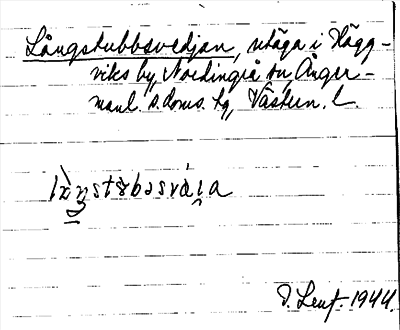 Långstubbsvedjan, utäga i Hägg-
viks by, Nordingrå sn, Ånger-
manl. s. doms. tg, Västern. l.
D. Lenf. 1944.